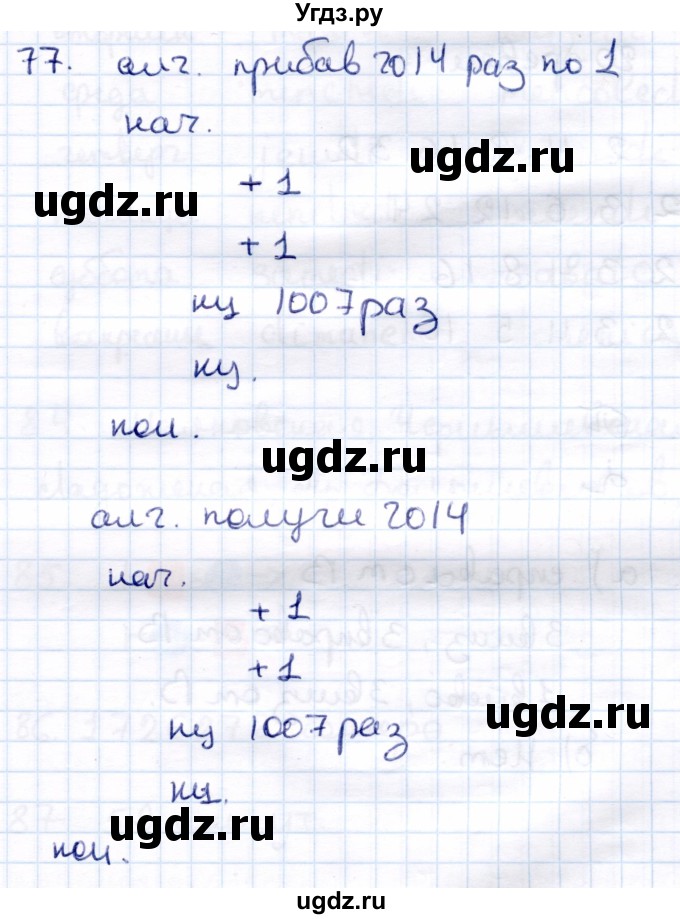 Угдз.ру
77. алг. прибав 2014 раз по 1
нач.
ugdz.ru
ugdz.ru
+ 1
+ 1
нц 1007 раз
нц.
кон.
ugdz.ru
алг. получи 2014
нач.
+ 1
+ 1
ugdz.ru
нц 1007 раз
нц.
ugdz.ru
кон.
ugdz.ru